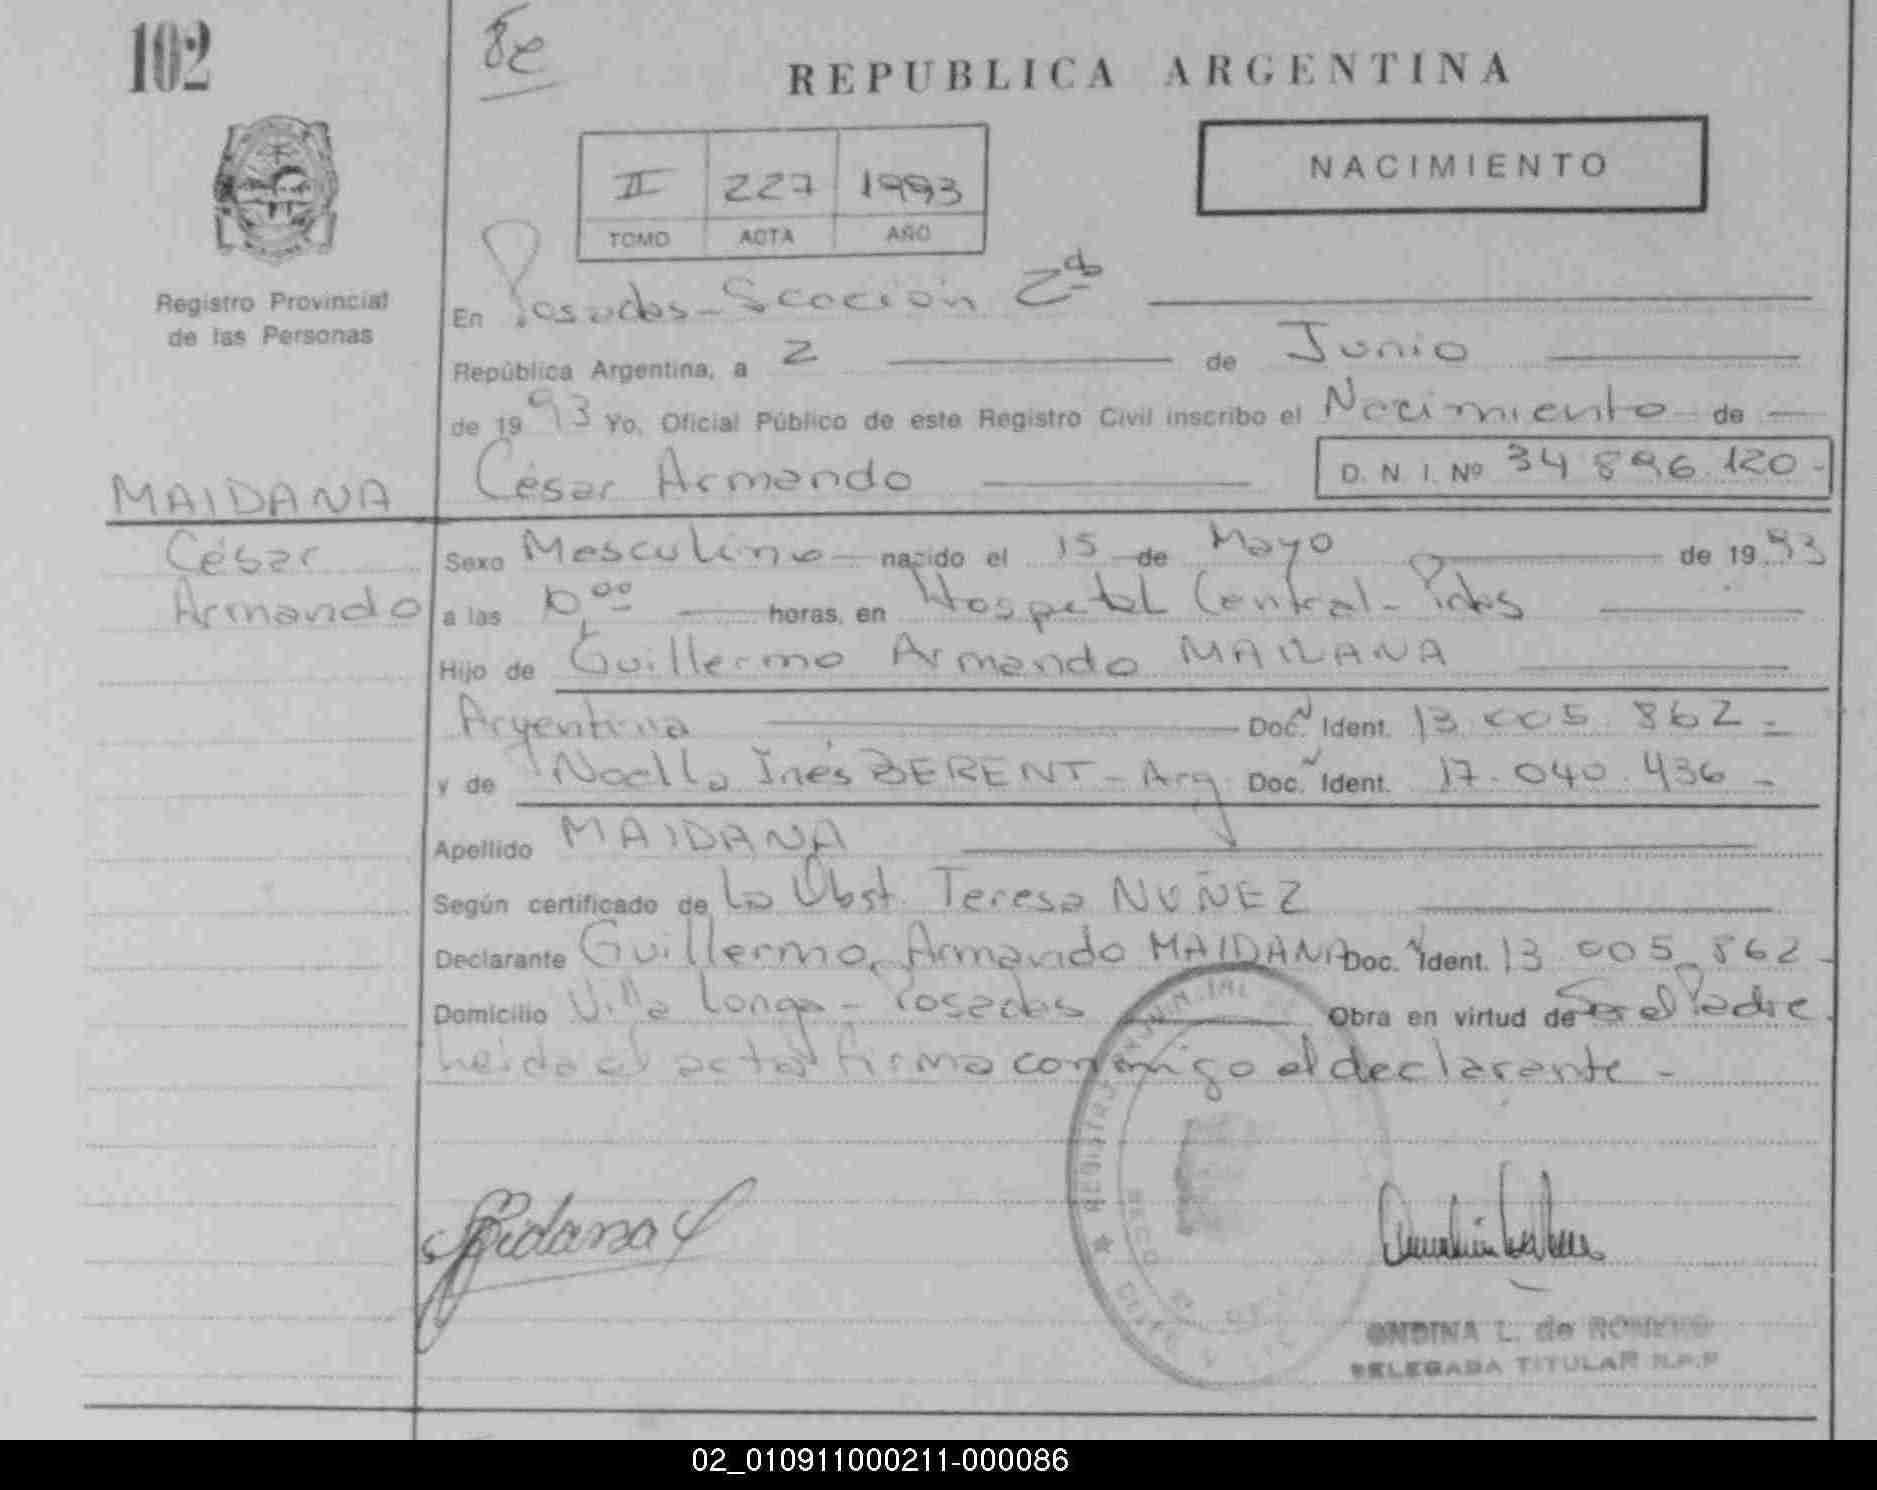 102
8e
REPUBLICA ARGENTINA
II 227 1993
TOMO ACTA AÑO
NACIMIENTO
Registro Provincial
de las Personas
En Posadas - Sección 2da
República Argentina, a 2 de Junio
de 1993 Yo, Oficial Público de este Registro Civil inscribo el Nacimiento de
MAIDANA
César Armando D. N. I. Nº 34 896 120-
César
Armando
Sexo Masculino nacido el 15 de Mayo de 1993
a las 10,00 horas, en Hospital Central - Pdas
Hijo de Guillermo Armando MAIDANA
Argentina Doc. Ident. 13 005 862 -
y de Noella Inés BERENT - Arg Doc. Ident. 17.040.436 -
Apellido MAIDANA
Según certificado de La Obst. Teresa NUÑEZ
Declarante Guillermo Armando MAIDANA Doc. Ident. 13 005 862 -
Domicilio Villa Longa - Posadas Obra en virtud de Ser el Padre
heida el acta firma conmigo el declarante -
REGISTRO
ONDINA L. de ROMERO
DELEGADA TITULAR R.P.P
02_010911000211-000086